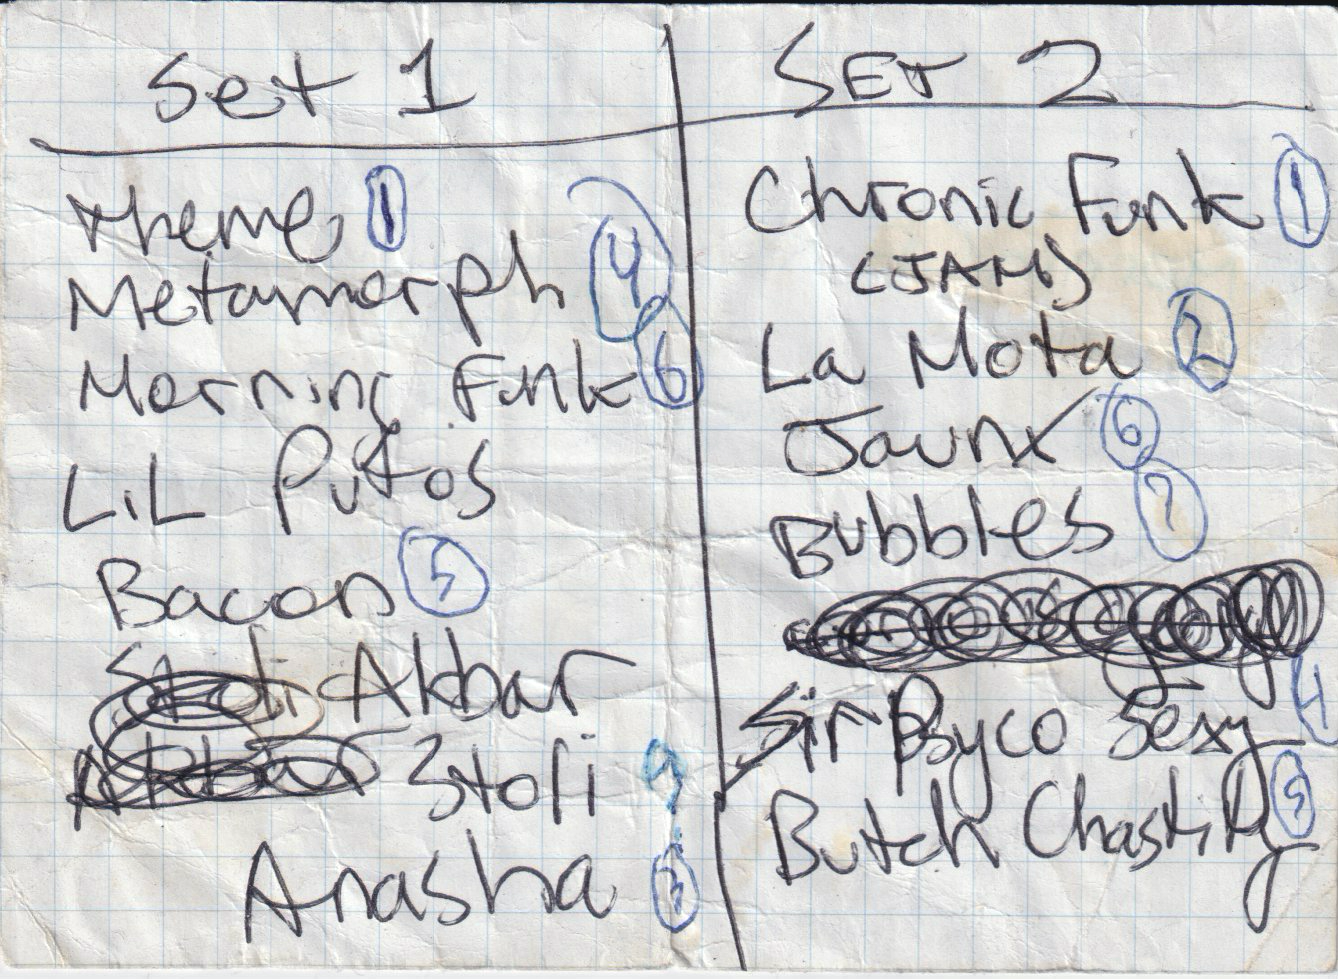 Set 1
Theme 1
Metamorph 4
Morning Funk 6
LiL Putos
Bacon 5
Stoli Akbar
Akbar Stoli 9
Anasha
SET 2
Chronic Funk 1
(JAM)
La Mota 2
Jaunx 6
Bubbles 7
Sir Psyco Sexy 4
Butch Chastity